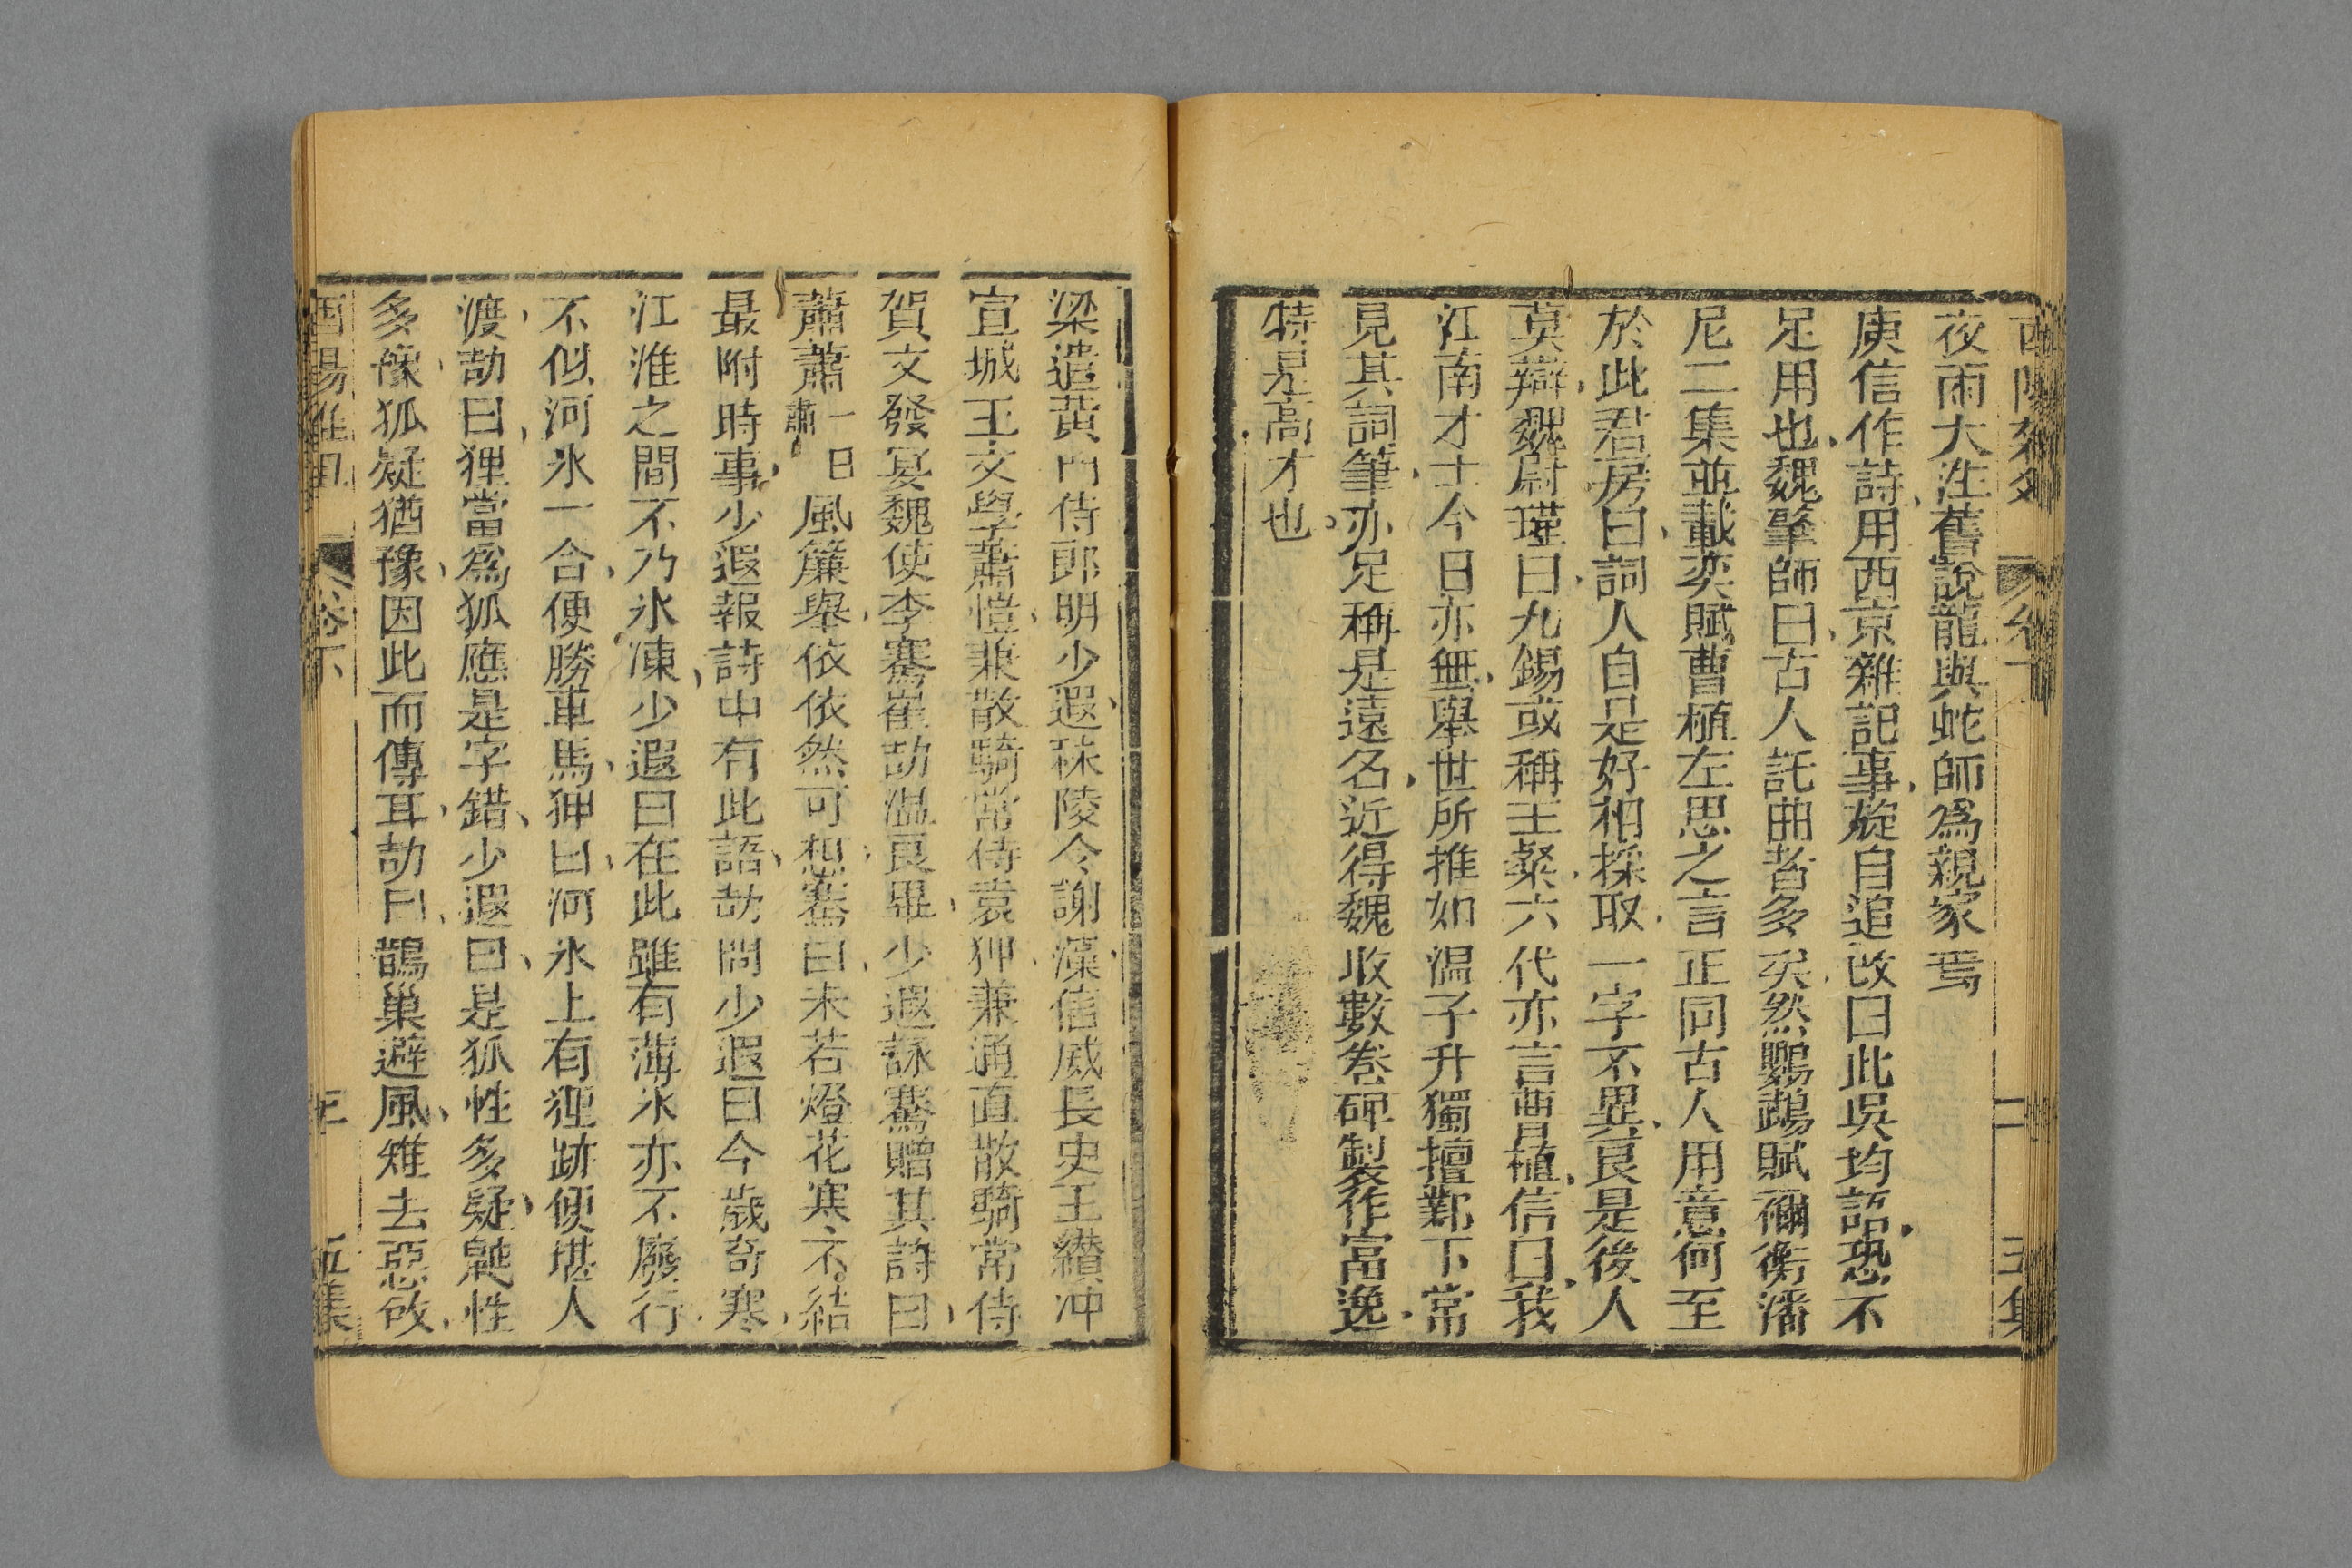 夜雨大注舊說龍與蛇師爲親家焉
庾信作詩用西京雜記事旋自追改曰此吳均語恐不
足用也魏肇師曰古人託曲者多矣然鸚鵡賦禰衡潘
尼二集並載奕賦曹植左思之言正同古人用意何至
於此君房曰詞人自是好相採取一字不異良是後人
莫辯魏尉瑾曰九錫或稱王粲六代亦言曹植信曰我
江南才士今日亦無舉世所推如温子升獨擅鄴下常
見其詞筆亦足稱是遠名近得魏收數卷碑製作富逸
特是高才也
梁遣黄門侍郎明少遐秣陵令謝藻信威長史王纉冲
宣城王文學蕭愷兼散騎常侍袁狎兼通直散騎常侍
賀文發宴魏使李騫崔劼温良畢少遐詠騫贈其詩曰
蕭蕭一曰肅肅風簾舉依依然可想騫曰未若燈花寒不結
最附時事少遐報詩中有此語劼問少遐曰今歲奇寒
江淮之間不乃氷凍少遐曰在此雖有薄氷亦不廢行
不似河氷一合便勝車馬狎曰河氷上有狸跡便堪人
渡劼曰狸當爲狐應是字錯少遐曰是狐性多疑鼬性
多豫狐疑猶豫因此而傳耳劼曰鵲巢避風雉去惡政
酉陽雜俎 卷下 五集